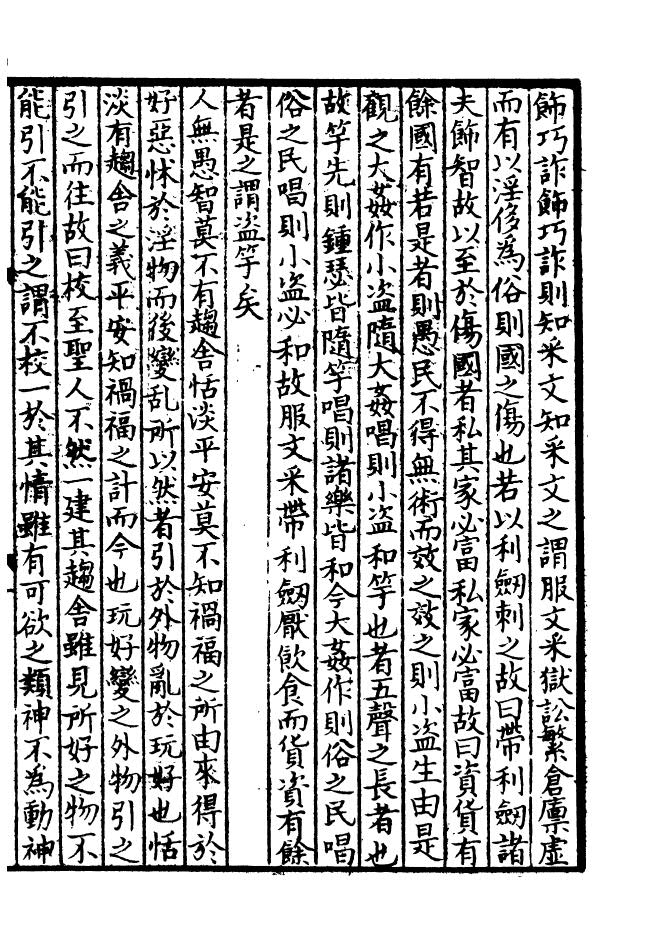 飾巧詐飾巧詐則知采文知采文之謂服文采獄訟繁倉廩虛
而有以淫侈為俗則國之傷也若以利劔刺之故曰帶利劔諸
夫飾智故以至於傷國者私其家必富私家必富故曰資貨有
餘國有若是者則愚民不得無術而效之效之則小盗生由是
觀之大姦作小盗隨大姦唱則小盗和竽也者五聲之長者也
故竽先則鍾瑟皆隨竽唱則諸樂皆和今大姦作則俗之民唱
俗之民唱則小盗必和故服文采帶利劔厭飲食而貨資有餘
者是之謂盗竽矣
人無愚智莫不有趨舍恬淡平安莫不知禍福之所由來得於
好惡怵於淫物而後變乱所以然者引於外物亂於玩好也恬
淡有趨舍之義平安知禍福之計而今也玩好變之外物引之
引之而往故曰拔至聖人不然一建其趨舍雖見所好之物不
能引不能引之謂不拔一於其情雖有可欲之類神不為動神